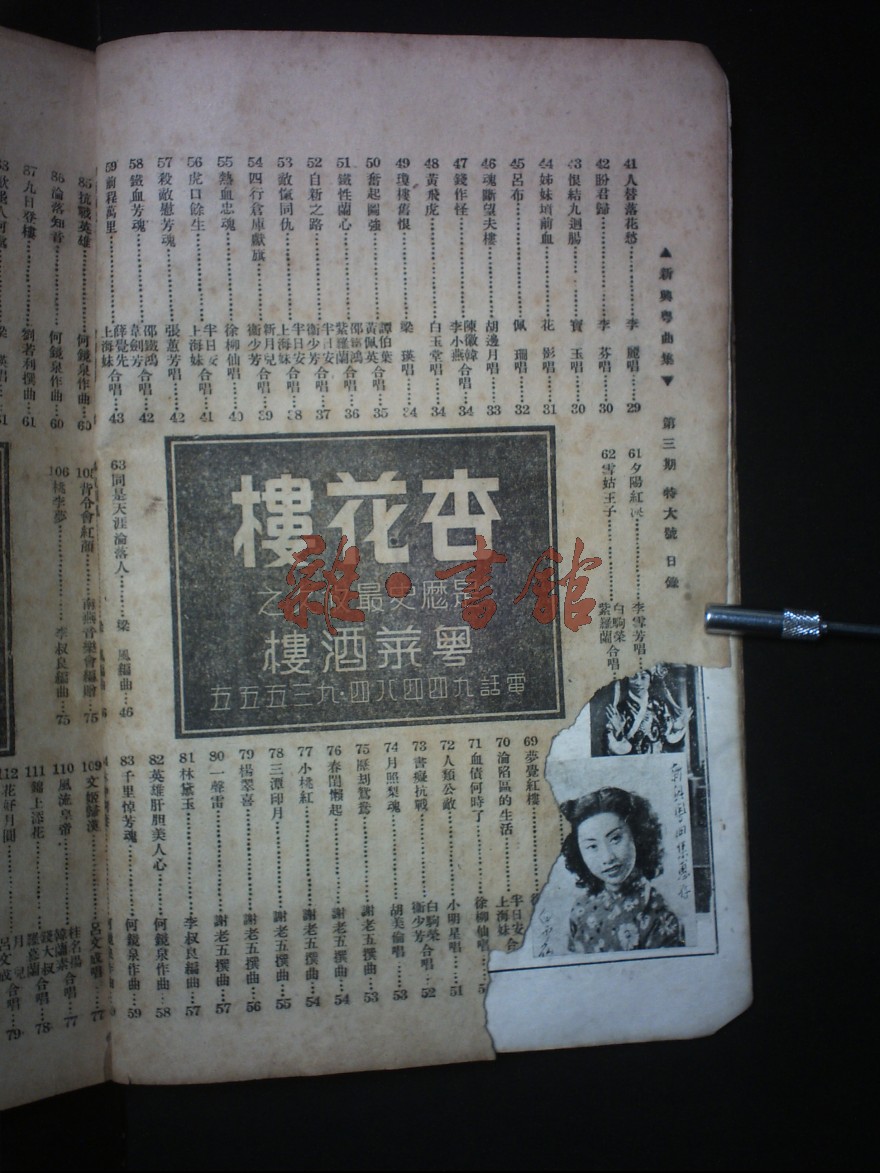 ▲新興粵曲集▼ 第三期 特大號 目錄
41 人替落花愁 李 麗唱 29
42 盼君歸 李 芬唱 30
43 恨結九迴腸 寶 玉唱 30
44 姊妹墳前血 花 影唱 31
45 呂布 佩 珊唱 32
46 魂斷望夫樓 胡邊月唱 33
47 錢作怪 陳徽韓 李小燕合唱 34
48 黃飛虎 白玉堂唱 34
49 瓊樓舊恨 梁 瑛唱 34
50 奮起圖強 譚伯葉 黃佩英合唱 35
51 鐵性蘭心 邵鐵鴻 紫羅蘭合唱 36
52 自新之路 半日安 衞少芳合唱 37
53 敵愾同仇 半日安 上海妹合唱 38
54 四行倉庫獻旗 新月兒 衞少芳合唱 39
55 熱血忠魂 徐柳仙唱 40
56 虎口餘生 半日安 上海妹合唱 41
57 殺敵慰芳魂 張蕙芳唱 42
58 鐵血芳魂 邵鐵鴻 韋劍芳合唱 42
59 前程萬里 薛覺先 上海妹合唱 43
61 夕陽紅 李雪芳唱
62 雪姑王子 白駒榮 紫羅蘭合唱
杏花樓
是歷史最 之
粵菜酒樓
電話九四四八四·九三五五五
雜·書館
63 同是天涯淪落人 梁 鳳編曲 46
69 夢覺紅樓
70 淪陷區的生活 半日安 上海妹合
71 血債何時了 徐柳仙唱
72 人類公敵 小明星唱 51
73 書癡抗戰 白駒榮 衞少芳合唱 52
74 月照梨魂 胡美倫唱 53
75 歷刧鴛鴦 謝老五撰曲 53
76 春閨懶起 謝老五撰曲 54
77 小桃紅 謝老五撰曲 54
78 三潭印月 謝老五撰曲 55
79 楊翠喜 謝老五撰曲 56
80 一聲雷 謝老五撰曲 57
81 林黛玉 李叔良編曲 57
82 英雄肝胆美人心 何鏡泉作曲 58
83 千里悼芳魂 何鏡泉作曲 59
85 抗戰英雄 何鏡泉作曲 60
86 淪落知音 何鏡泉作曲 60
87 九日登樓 劉若利撰曲 61
105 背令會紅顏 南燕音樂會編贈 75
106 桃李夢 李叔良編曲 75
109 文姬歸漢 呂文成唱 77
110 風流皇帝 桂名揚 韓蘭素合唱 77
111 錦上添花 錢大叔 羅慕蘭合唱 78
112 花好月圓 月 兒 呂文成合唱 79